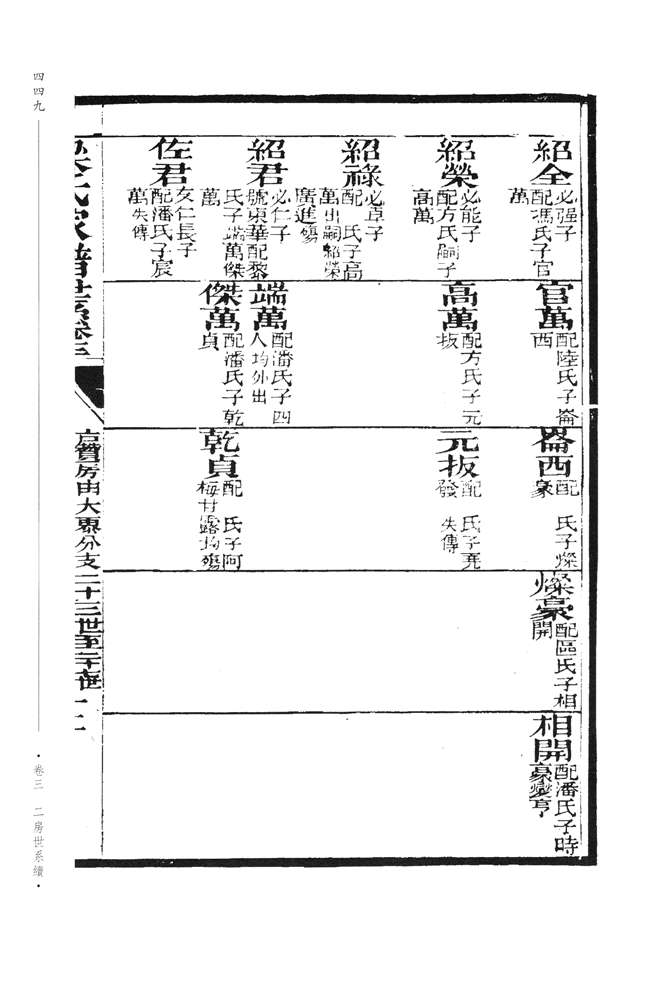 四四九
卷三 二房世系續
紹全
必强子
配馮氏子官
萬
紹榮
必能子
配方氏嗣子
高萬
紹祿
必卓子
配 氏子高
萬出嗣紹榮
廣進殤
紹君
必仁子
號東華配黎
氏子端萬傑
萬
佐君
友仁長子
配潘氏子宸
萬失傳
官萬
配陸氏子崙
西
高萬
配方氏子元
扳
端萬
配潘氏子四
人均外出
傑萬
配潘氏子乾
貞
崙西
配 氏子燦
豪
元扳
配 氏子堯
發 失傳
乾貞
配 氏子阿
梅甘露均殤
燦豪
配區氏子相
開
相開
配潘氏子時
豪燮亨
氏家譜世系卷三
房由大 分支二十三世至二十世